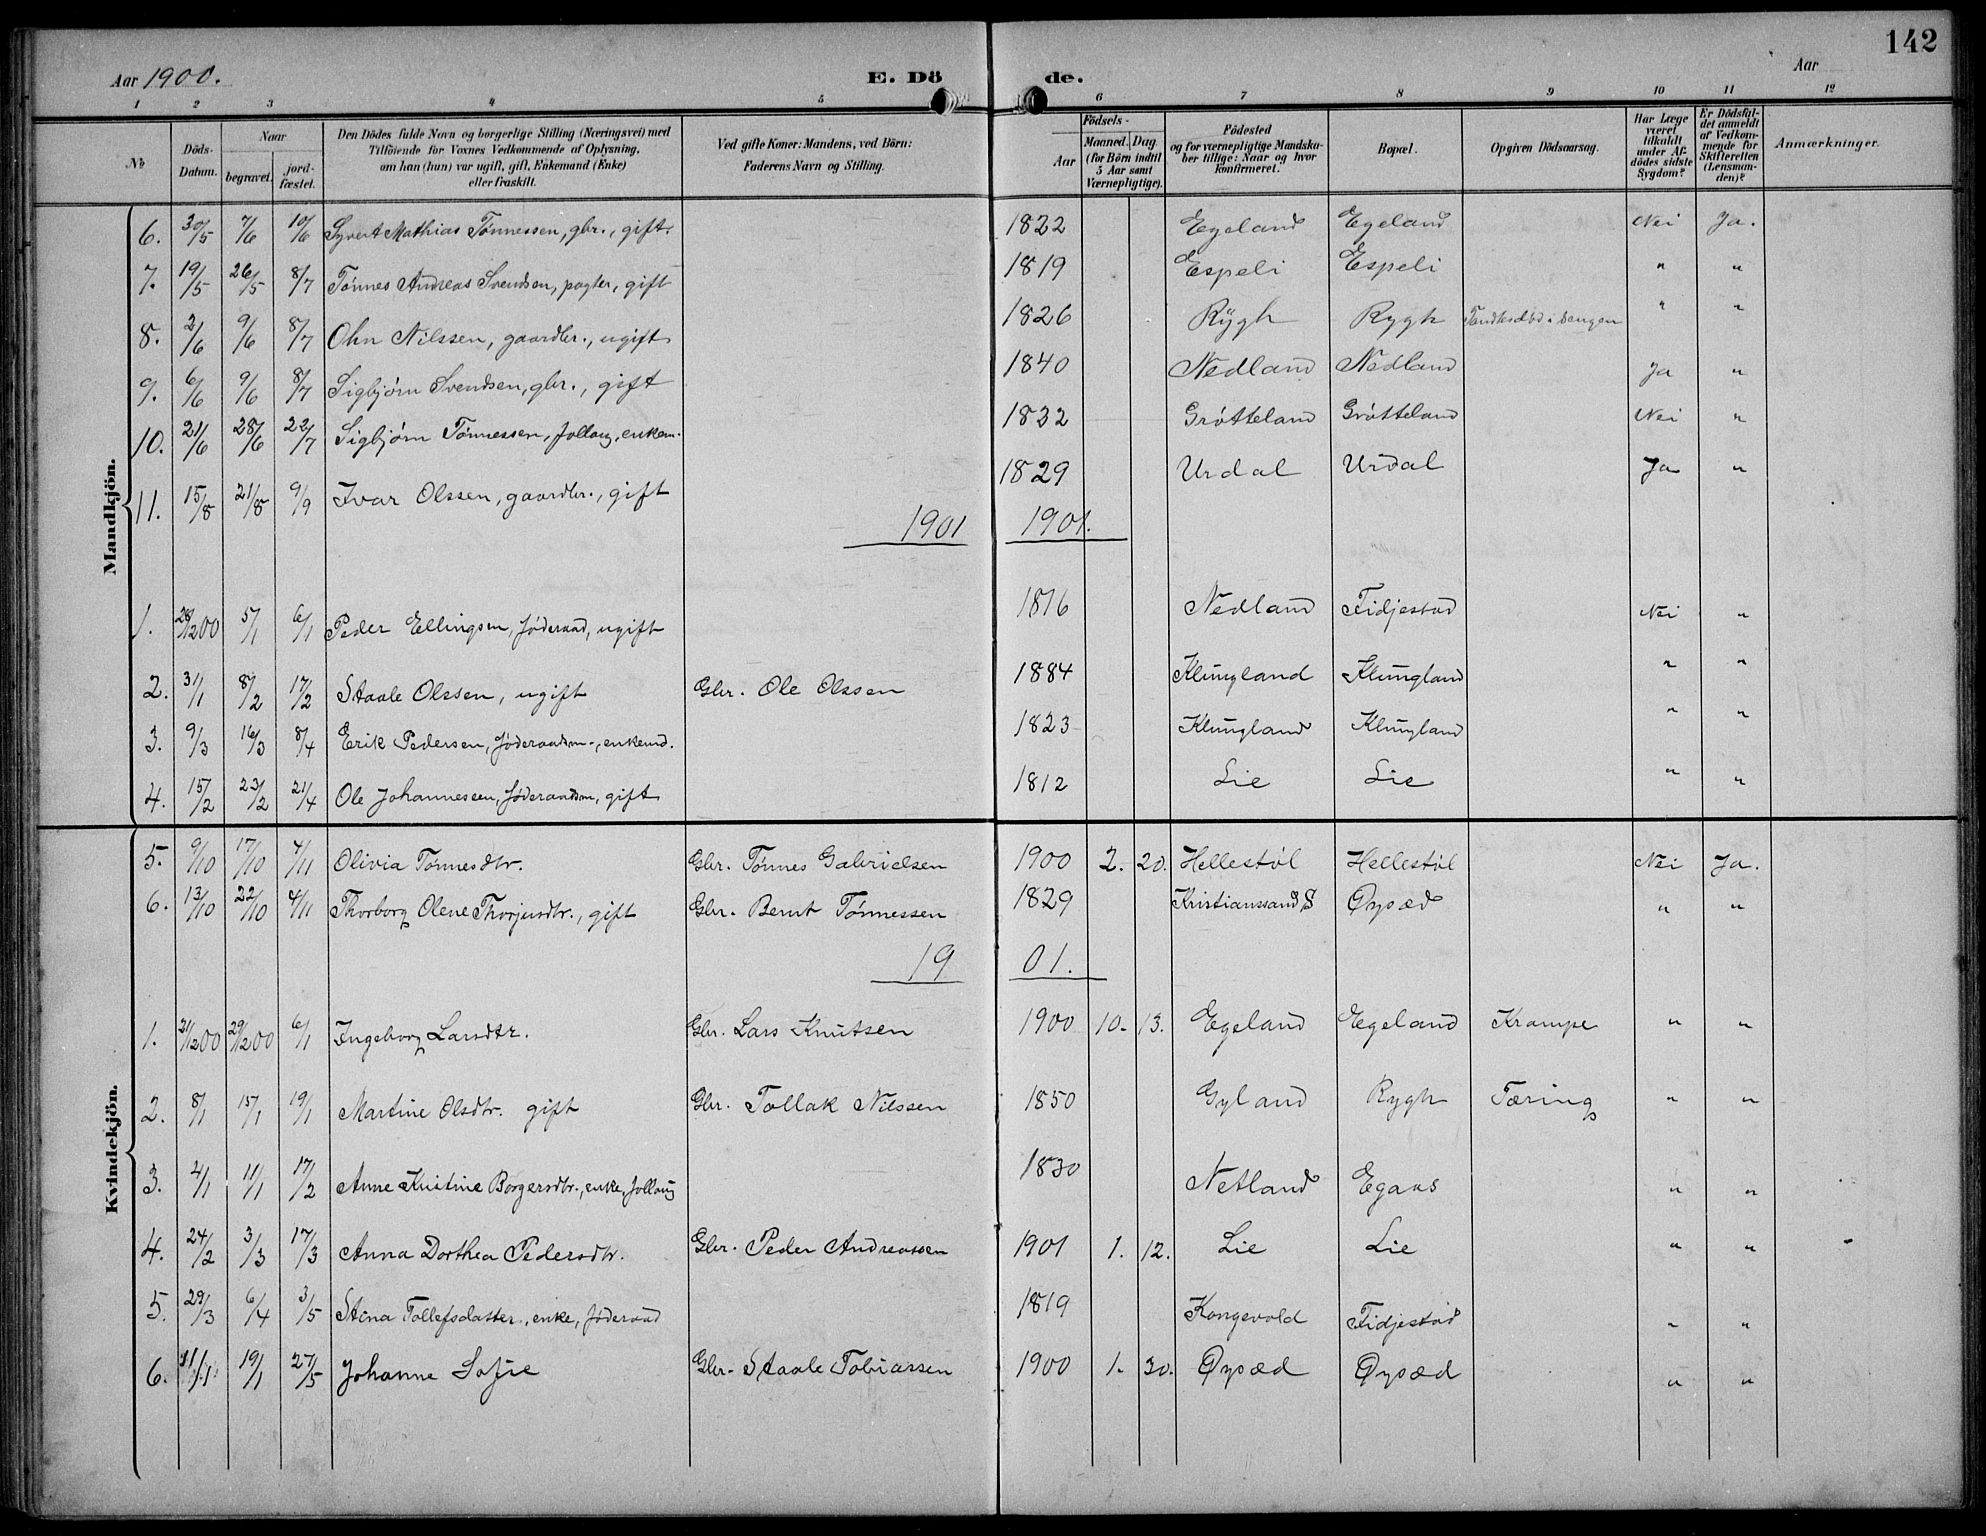 142
Aar 1900. E. Dö de. Aar
1 2 3 4 5 6 7 8 9 10 11 12
No
Döds-Datum.
Naar
begravet. jordfæstet.
Den Dödes fulde Navn og borgerlige Stilling (Næringsvei) med Tilföiende for Voxnes Vedkommende af Oplysning, om han (hun) var ugift, gift, Enkemand (Enke) eller fraskilt.
Ved gifte Koner: Mandens, ved Börn: Faderens Navn og Stilling.
Födsels-
Aar Maaned. Dag. (for Börn indtil 5 Aar samt Værnepligtige).
Födested og for værnepligtige Mandskaber tillige: Naar og hvor konfirmeret.
Bopæl.
Opgiven Dödsaarsag.
Har Læge været tilkaldt under Afdödes sidste Sygdom?
Er Dödsfaldet anmeldt af Vedkommende for Skifteretten (Lensmanden)?
Anmærkninger.
Mandkjön.
6. 30/5 7/6 10/6 Syvert Mathias Tønnessen, gbr., gift. 1822 Egeland Egeland Nei Ja.
7. 19/5 26/5 8/7 Tønnes Andreas Svendsen, pagter, gift 1819 Espeli Espeli " "
8. 2/6 9/6 8/7 Ohn Nilssen, gaardbr., ugift 1826 Rygh Rygh " "
9. 6/6 9/6 8/7 Sigbjørn Svendsen, gbr., gift 1840 Nedland Nedland Ja "
10. 21/6 28/6 22/7 Sigbjørn Tønnessen, follaug, enkem. 1832 Grøtteland Grøtteland Nei "
11. 15/8 21/8 9/9 Ivar Olssen, gaardbr., gift 1829 Urdal Urdal Ja "
1901 1901.
1. 28/12 00 5/1 6/1 Peder Ellingsen, føderaad, ugift 1816 Nedland Fidjestad Nei "
2. 31/1 8/2 17/2 Staale Olssen, ugift Gbr. Ole Olssen 1884 Klungland Klungland " "
3. 9/3 16/3 8/4 Erik Pedersen, føderaadsm., enkemd. 1823 Klungland Klungland " "
4. 15/2 23/2 21/4 Ole Johannessen, føderaadsm, gift 1812 Lie Lie " "
Kvindekjön.
5. 9/10 17/10 7/11 Olivia Tønnesdtr. Gbr. Tønnes Gabrielsen 1900 2. 20. Hellestøl Hellestøl Nei Ja.
6. 13/10 22/10 4/11 Thorborg Olene Thorjusdtr., gift Gbr. Bernt Tønnessen 1829 Kristianssand S Øysæd " "
19 01.
1. 21/12 00 29/12 00 6/1 Ingeborg Larsdtr. Gbr. Lars Knutsen 1900 10. 13. Egeland Egeland Krampe " "
2. 8/1 15/1 19/1 Martine Olsdtr. gift Gbr. Tollak Nilssen 1850 Gyland Rygh Tæring " "
3. 4/1 11/1 17/2 Anne Kristine Borgersdtr., enke, follaug 1830 Netland Egaas " "
4. 24/2 3/3 17/3 Anna Dorthea Pedersdtr. Gbr. Peder Andreassen 1901 1. 12. Lie Lie " "
5. 29/3 6/4 3/5 Stina Tollefsdatter, enke, føderaad 1819 Kongevold Fidjestad " "
6. 11/1 19/1 27/5 Johanne Sofie Gbr. Staale Tobiassen 1900 1. 30. Øysæd Øysæd " "